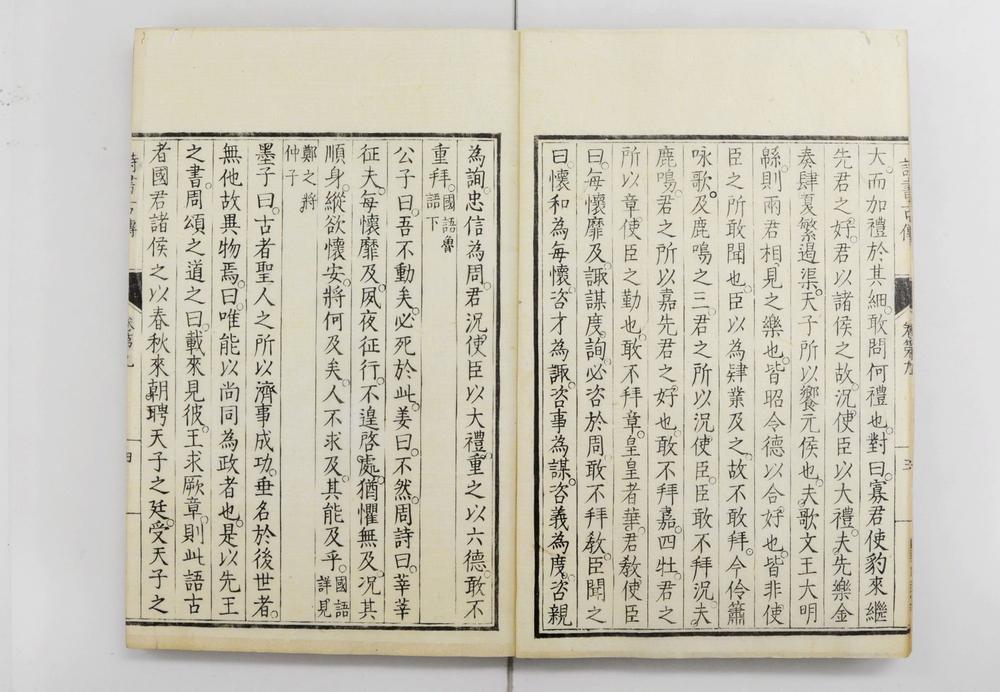 大。而加禮於其細。敢問何禮也。對曰。寡君使豹來繼
先君之好。君以諸侯之故。況使臣以大禮。夫先樂金
奏肆夏繁遏渠。天子所以饗元侯也。夫歌文王大明
緜。則兩君相見之樂也。皆昭令德以合好也。皆非使
臣之所敢聞也。臣以為肄業及之。故不敢拜。今伶簫
咏歌。及鹿鳴之三。君之所以況使臣。臣敢不拜況。夫
鹿鳴。君之所以嘉先君之好也。敢不拜嘉。四牡。君之
所以章使臣之勤也。敢不拜章。皇皇者華。君教使臣
曰。每懷靡及。諏謀度詢。必咨於周。敢不拜教。臣聞之
曰。懷和為每懷。咨才為諏。咨事為謀。咨義為度。咨親
為詢。忠信為周。君況使臣以大禮。重之以六德。敢不
重拜。國語魯語下
公子曰。吾不動矣。必死於此。姜曰。不然。周詩曰。莘莘
征夫。每懷靡及。夙夜征行。不遑啓處。猶懼無及。況其
順身。縱欲懷安。將何及矣。人不求及。其能及乎。國語詳見
鄭之將仲子
墨子曰。古者聖人之所以濟事成功。垂名於後世者。
無他故異物焉。曰。唯能以尚同為政者也。是以先王
之書周頌之道之曰。載來見彼。王求厥章。則此語古
者國君諸侯之以春秋來朝聘天子之廷。受天子之
卷第九
三
四